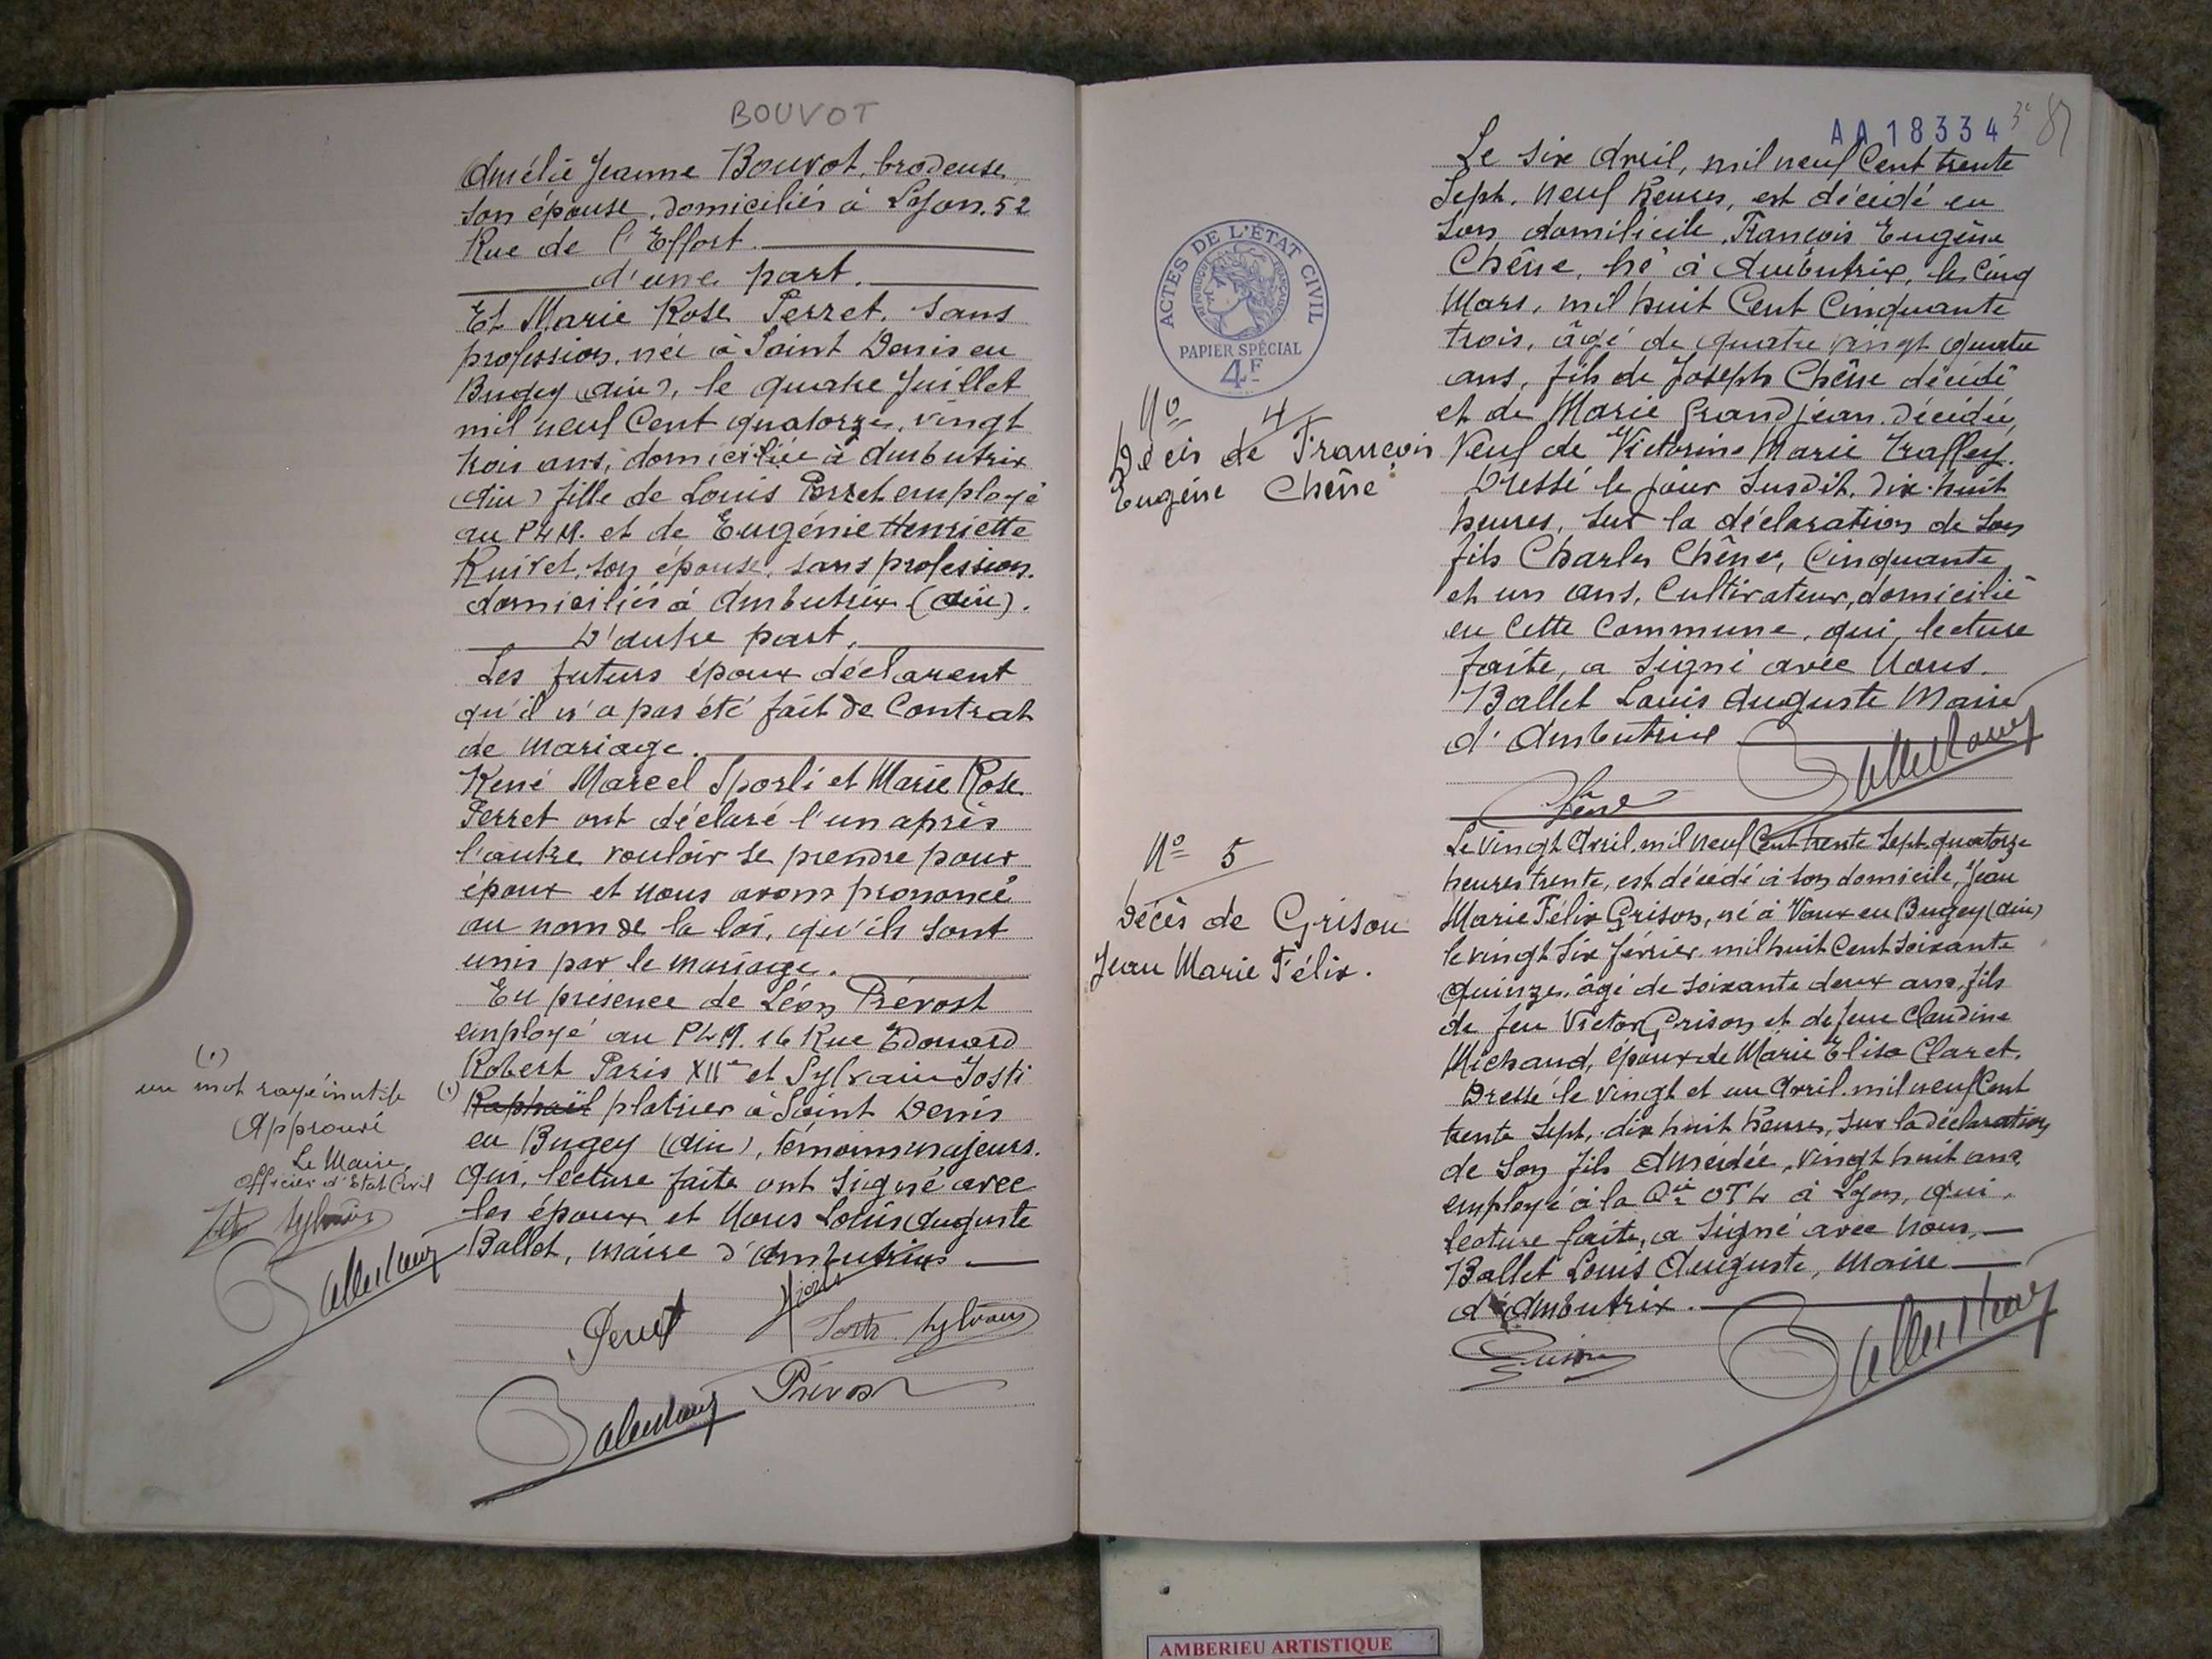 BOUVOT
Amélie Jeanne Bouvot, brodeuse
son épouse, domiciliés à Lyon. 52
Rue de l'Effort.
d'une part.
Et Marie Rose Perret. sans
profession, née à Saint Denis en
Bugey (ain), le quatre Juillet
mil neuf Cent quatorze, vingt
trois ans, domiciliée à Ambutrix
(Ain) fille de Louis Perret employé
au PLM. et de Eugénie Henriette
son épouse, sans profession.
domiciliés à Ambutrix (ain).
D'autre part.
Les futurs époux déclarent
qu'il n'a pas été fait de Contrat
de mariage.
René Marcel Sporli et Marie Rose
Perret ont déclaré l'un après
l'autre vouloir se prendre pour
époux et nous avons prononcé
au nom de la loi, qu'ils sont
unis par le mariage.
En présence de Léon Prévost
employé au PLM. 16 Rue Edouard
Robert Paris XIIe et Sylvain Josti
(1) Raphaël platrier à Saint Denis
en Bugey (Ain), témoins majeurs.
qui, lecture faite ont signé avec
les époux et Nous Louis Auguste
Ballet, maire d'Ambutrix.
(1)
un mot rayé inutile
Approuvé
Le Maire,
Officier d'Etat Civil
Perret
Prévost
AA18334
3e 87
ACTES DE L'ÉTAT CIVIL
RÉPUBLIQUE FRANÇAISE
PAPIER SPÉCIAL
4F
No 4
Décès de François
Eugène Chêne
Le six Avril, mil neuf Cent trente
Sept. neuf heures, est décédé en
Son domilicile, François Eugène
Chêne, né à Ambutrix, le Cinq
Mars, mil huit Cent Cinquante
trois, âgé de quatre vingt quatre
ans, fils de Joseph Chêne décédé
et de Marie Grandjean. décédée,
Veuf de Victorine Marie
Dressé le jour susdit. dix-huit
heures, sur la déclaration de son
fils Charles Chêne, Cinquante
et un ans, Cultivateur, domicilié
en Cette Commune, qui, lecture
faite, a signé avec Nous.
Ballet Louis Auguste Maire
d'Ambutrix
Chêne
No 5
Décès de Grison
Jean Marie Félix.
Le vingt Avril. mil neuf Cent trente sept. quatorze
heures trente, est décédé à son domicile, Jean
Marie Félix Grison, né à Vaux en Bugey (Ain)
le vingt six février mil huit Cent soixante
quinze, âgé de soixante deux ans, fils
de feu Victor Grison et de feue Claudine
Michaud, époux de Marie Elisa Claret.
Dressé le vingt et un Avril. mil neuf Cent
trente Sept, dix huit heures, sur la déclaration
de son fils Amédée, vingt huit ans,
employé à la Cie OTL à Lyon, qui,
lecture faite, a signé avec Nous,
Ballet Louis Auguste, Maire
d'Ambutrix.
Grison
AMBERIEU ARTISTIQUE